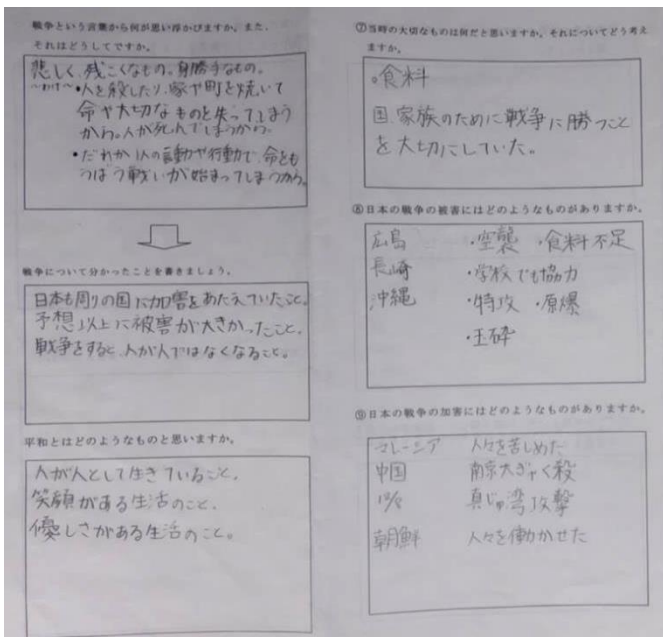 戦争という言葉から何が思い浮かびますか。また、
それはどうしてですか。
悲しく、残こくなもの。身勝手なもの。
〜わけ〜・人を殺したり、家や町を焼いて
命や大切なものを失ってしまう
から。人が死んでしまうから。
・だれか1人の言動や行動で、命をも
うばう戦いが始まってしまうから。
戦争について分かったことを書きましょう。
日本も周りの国に加害をあたえていたこと。
予想以上に被害が大きかったこと。
戦争をすると、人が人ではなくなること。
平和とはどのようなものと思いますか。
人が人として生きていること。
笑顔がある生活のこと。
優しさがある生活のこと。
⑦当時の大切なものは何だと思いますか。それについてどう考え
ますか。
。食料
国、家族のために戦争に勝つこと
を大切にしていた。
⑧日本の戦争の被害にはどのようなものがありますか。
広島 ・空襲 ・食料不足
長崎 ・学校でも協力
沖縄 ・特攻 ・原爆
・玉砕
⑨日本の戦争の加害にはどのようなものがありますか。
マレーシア 人々を苦しめた
中国 南京大ぎゃく殺
12/8 真じゅ湾攻撃
朝鮮 人々を働かせた